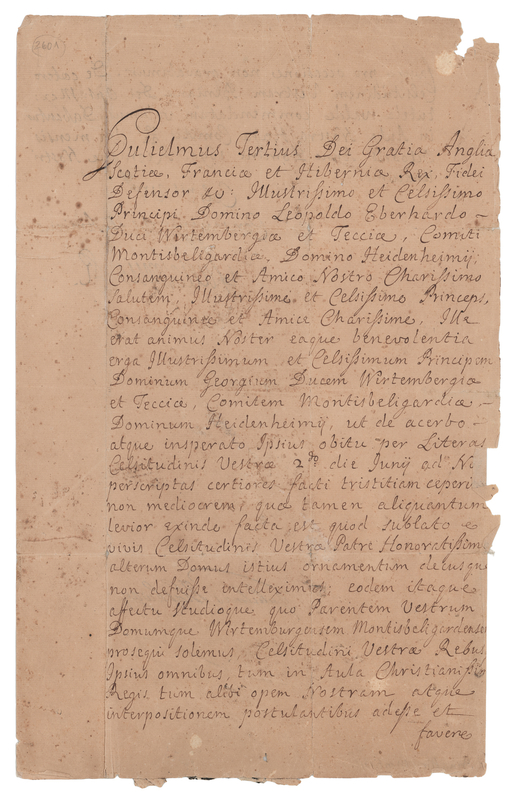 Gulielmus Tertius Dei Gratia Angliæ
Scotiæ, Franciæ et Hiberniæ Rex, Fidei
Defensor &c: Illustrissimo et Celsissimo
Principi, Domino Leopoldo Eberhardo -
Duci Wirtembergiæ et Tecciæ, Comiti
Montisbeligardiæ, Domino Heidenheimij;
Consanguineo et Amico Nostro Charissimo
Salutem, Illustrissime et Celsissime Princeps,
Consanguinee et Amice Charissime, Ille
erat animus Noster eaque benevolentia
erga Illustrissimum et Celsissimum Principem
Dominium Georgium Ducem Wirtembergiæ
et Tecciæ, Comitem Montisbeligardiæ -
Dominum Heidenheimij, ut de acerbo -
atque insperato Ipsius obitu per Literas
Celsitudinis Vestræ 2do die Junij ad Nos
perscriptas certiores facti tristitiam ceperi
non mediocrem, quæ tamen aliquantum
levior exinde facta est quod sublato e
vivis Celsitudinis Vestræ Patre Honoratissim
alterum Domus istius ornamentum decusque
non defuisse intelleximus; eodem itaque
affectu studioque quo Parentem Vestrum
Domumque Wirtemburgensem Montisbeligardense
prosequi solemus, Celsitudini Vestræ Rebus
Ipsius omnibus, tum in Aula Christianissi
Regis tum alibi opem Nostram atque
interpositionem postulantibus adesse et
favere